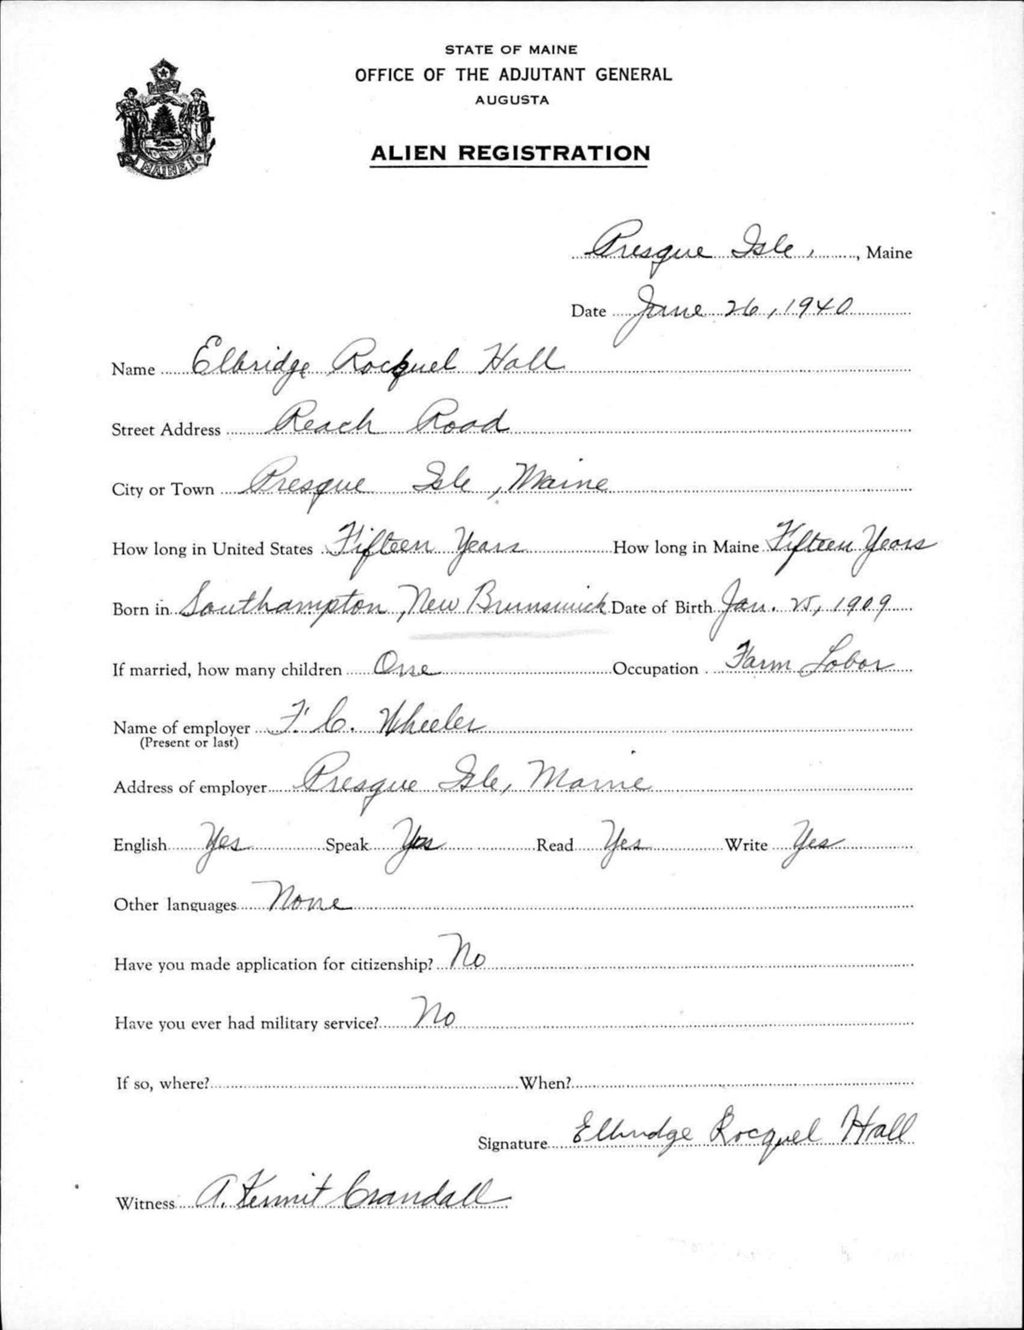 STATE OF MAINE
OFFICE OF THE ADJUTANT GENERAL
AUGUSTA
ALIEN REGISTRATION
MAINE
Presque Isle, , Maine
Date June 26, 1940
Name Elbridge Rocquel Hall
Street Address Reach Road
City or Town Presque Isle, Maine
How long in United States Fifteen Years How long in Maine Fifteen Years
Born in Southampton, New Brunswick Date of Birth Jan. 25, 1909
If married, how many children One Occupation Farm Labor
Name of employer F. C. Wheeler
(Present or last)
Address of employer Presque Isle, Maine
English Yes Speak Yes Read Yes Write Yes
Other languages None
Have you made application for citizenship? No
Have you ever had military service? No
If so, where? When?
Signature Elbridge Rocquel Hall
Witness A. Kermit Crandall